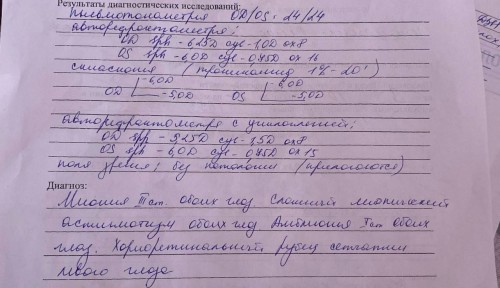 Результаты диагностических исследований:
Пневмотонометрия OD/OS = 24/24
авторефрактометрия:
OD sph - 6,25D cyl - 1,0D ax 8
OS sph - 6,0D cyl - 0,75D ax 16
скиаскопия (тропикамид 1% - 20'
OD -6,0D -5,0D OS 6,0D -5,0D
авторефрактометрия с циклоплегией:
OD sph - 5,25D cyl - 1,5D ax 8
OS sph - 6,0D cyl - 0,75D ax 15
поля зрения: без патологии (прилагаются)
Диагноз:
Миопия III ст. обоих глаз. Сложный миопический
астигматизм обоих глаз Амблиопия I ст обоих
глаз. Хориоретинальный рубец сетчатки
левого глаза